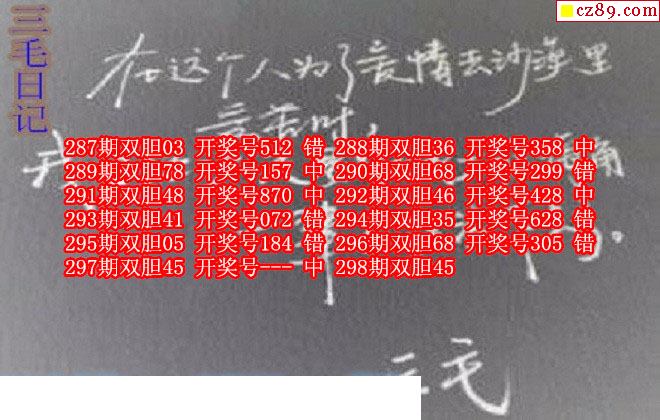 cz89.com
三毛日记
在这个人为了爱情去沙漠里
287期双胆03 开奖号512 错 288期双胆36 开奖号358 中
289期双胆78 开奖号157 中 290期双胆68 开奖号299 错
291期双胆48 开奖号870 中 292期双胆46 开奖号428 中
293期双胆41 开奖号072 错 294期双胆35 开奖号628 错
295期双胆05 开奖号184 错 296期双胆68 开奖号305 错
297期双胆45 开奖号--- 中 298期双胆45
三毛